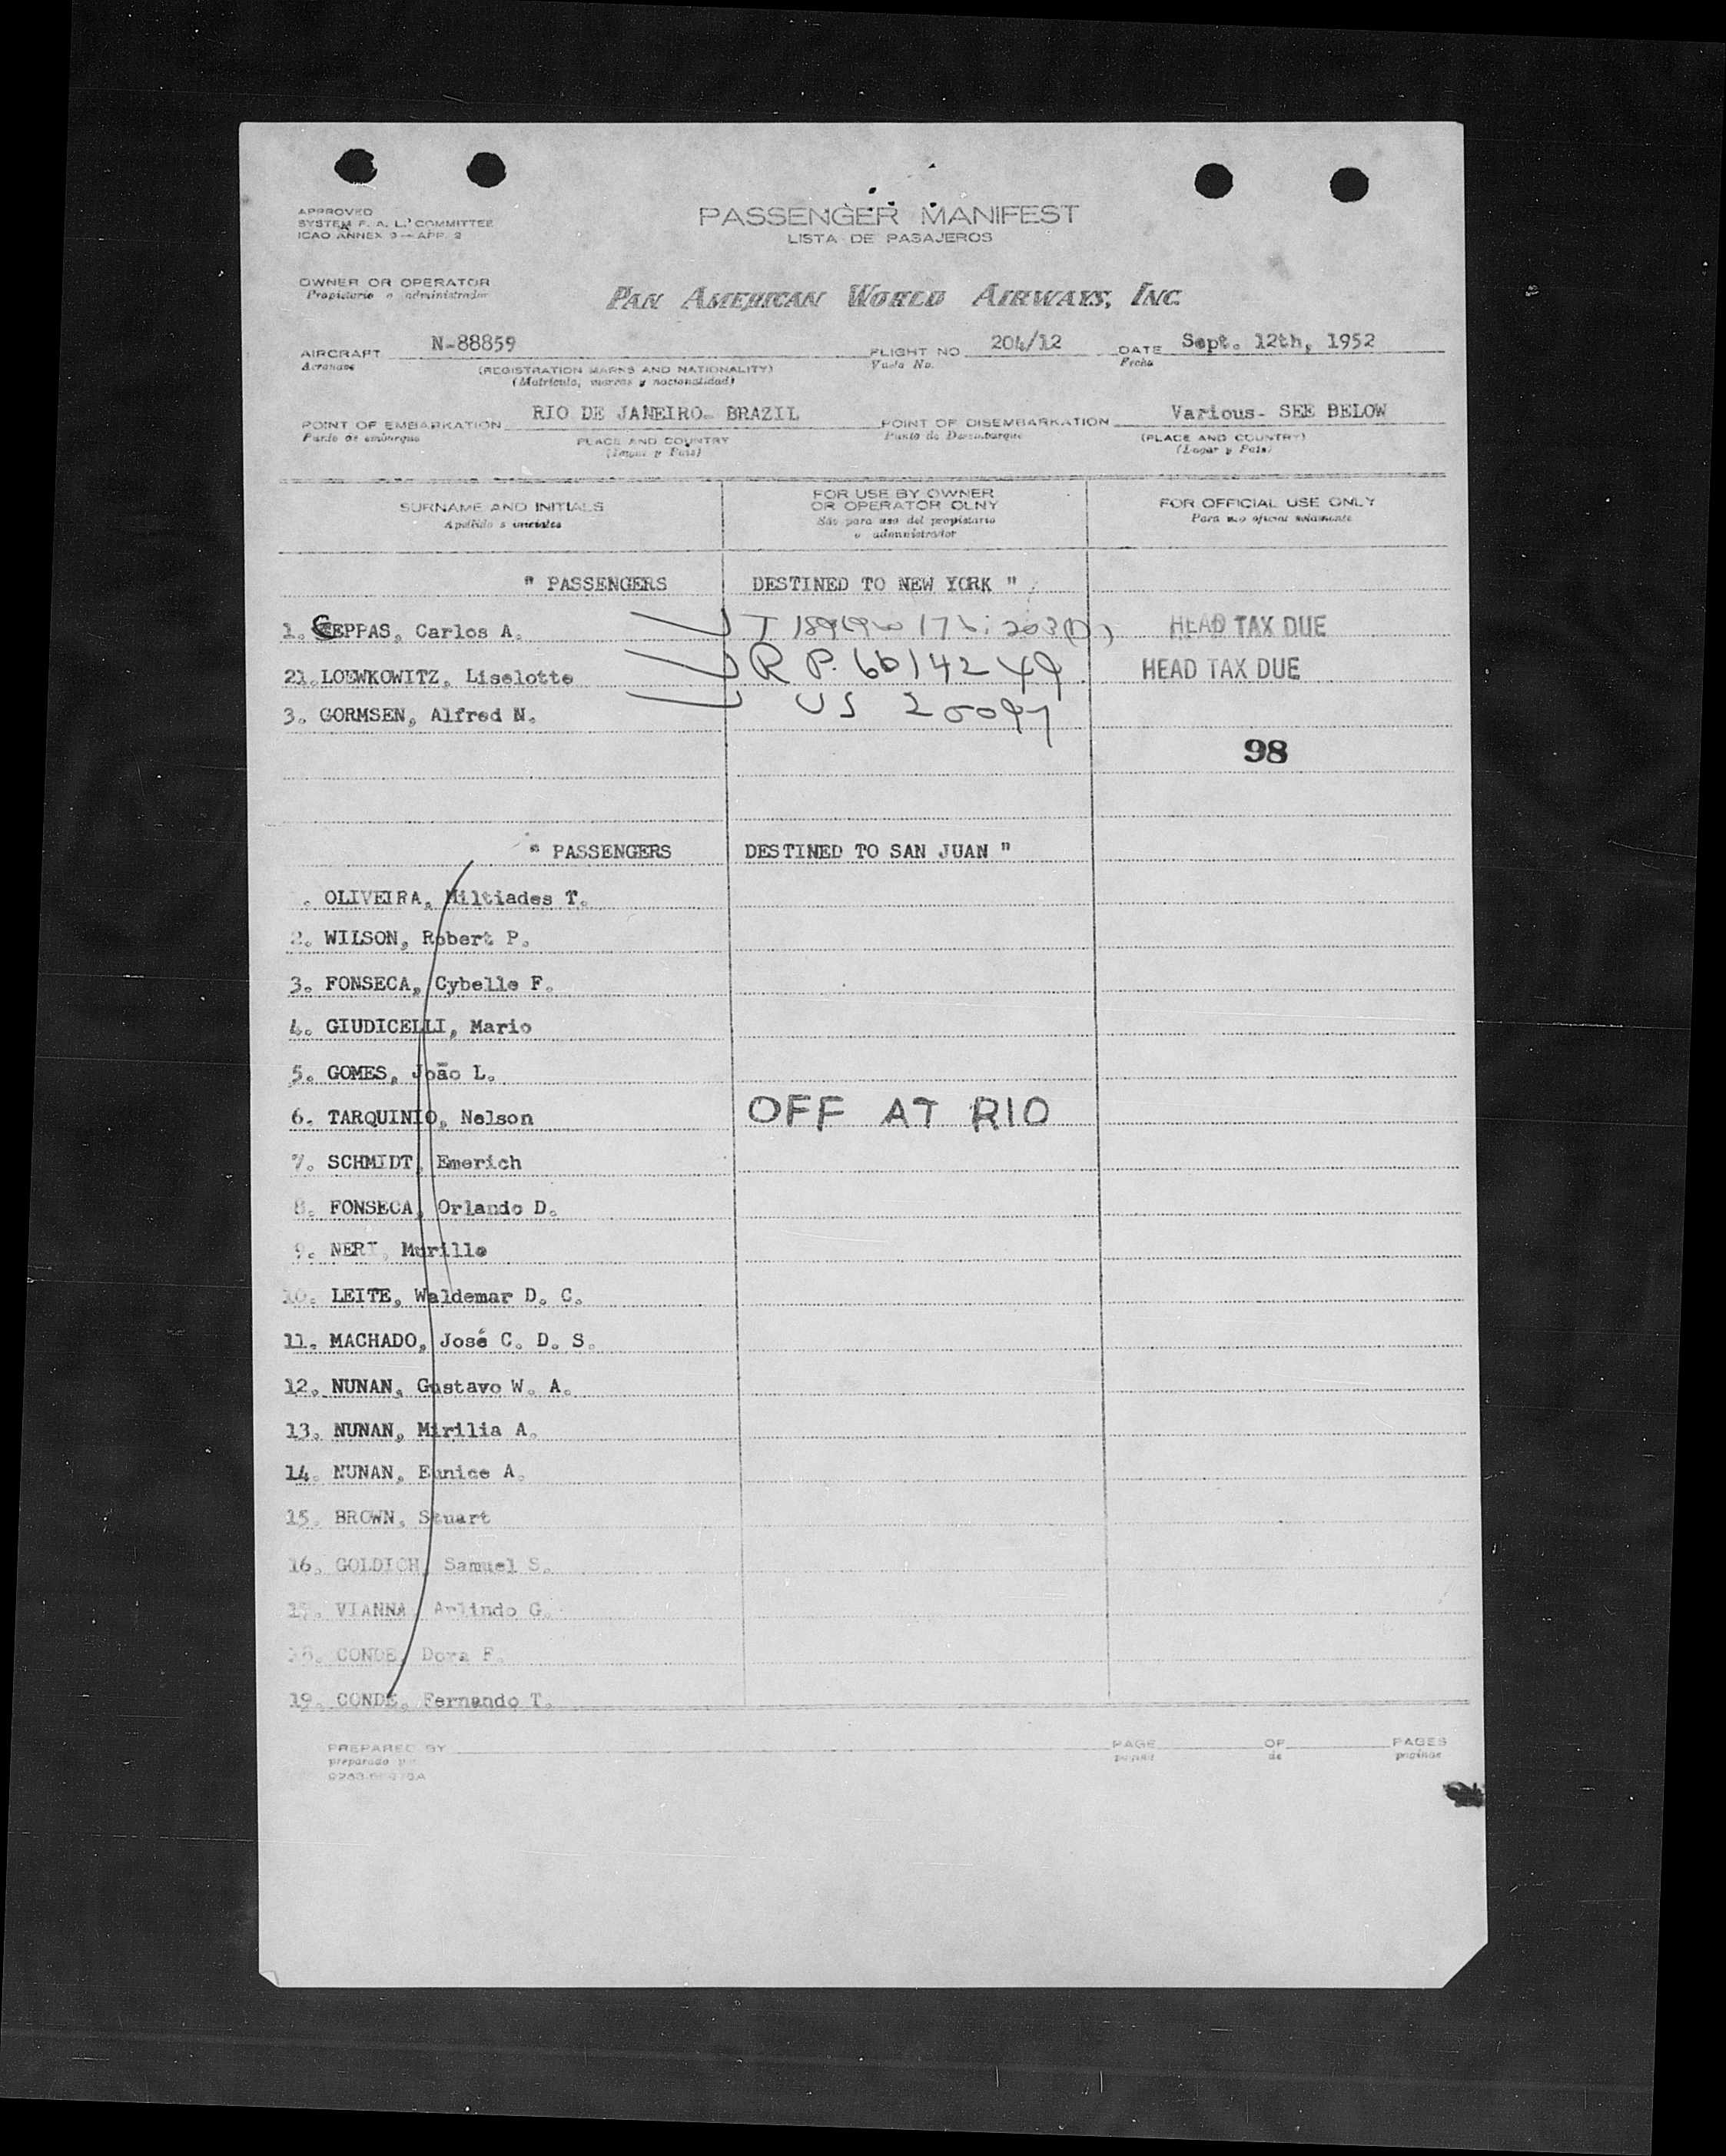 APPROVED
SYSTEM F. A. L. COMMITTEE
ICAO ANNEX 9 — APP. 2
PASSENGER MANIFEST
LISTA DE PASAJEROS
OWNER OR OPERATOR
Propietario o administrador
PAN AMERICAN WORLD AIRWAYS, INC.
AIRCRAFT N-88859 FLIGHT NO 204/12 DATE Sept. 12th, 1952
Aeronave (REGISTRATION MARKS AND NATIONALITY) Vuelo No. Fecha
(Matricula, marcas y nacionalidad)
POINT OF EMBARKATION RIO DE JANEIRO- BRAZIL POINT OF DISEMBARKATION Various- SEE BELOW
Punto de embarque PLACE AND COUNTRY Punto de Desembarque (PLACE AND COUNTRY)
(Lugar y Pais) (Lugar y Pais)
SURNAME AND INITIALS
Apellido e iniciales
FOR USE BY OWNER
OR OPERATOR OLNY
Sás para uso del propietario
o administrador
FOR OFFICIAL USE ONLY
Para uso oficial solamente
" PASSENGERS DESTINED TO NEW YORK "
1. CEPPAS, Carlos A. HEAD TAX DUE
21. LOEWKOWITZ, Liselotte R P. 6614249 HEAD TAX DUE
3. GORMSEN, Alfred N. US 20097
98
" PASSENGERS DESTINED TO SAN JUAN "
. OLIVEIRA, Miltiades T.
2. WILSON, Robert P.
3. FONSECA, Cybelle F.
4. GIUDICELLI, Mario
5. GOMES, João L.
6. TARQUINIO, Nelson OFF AT RIO
7. SCHMIDT, Emerich
8. FONSECA, Orlando D.
9. NERI, Murillo
10. LEITE, Waldemar D. C.
11. MACHADO, José C. D. S.
12. NUNAN, Gustavo W. A.
13. NUNAN, Mirilia A.
14. NUNAN, Eunice A.
15. BROWN, Stuart
16. GOLDICH, Samuel S.
17. VIANNA, Arlindo G.
18. CONDE, Dora F.
19. CONDE, Fernando T.
PREPARED BY PAGE OF PAGES
preparado por de